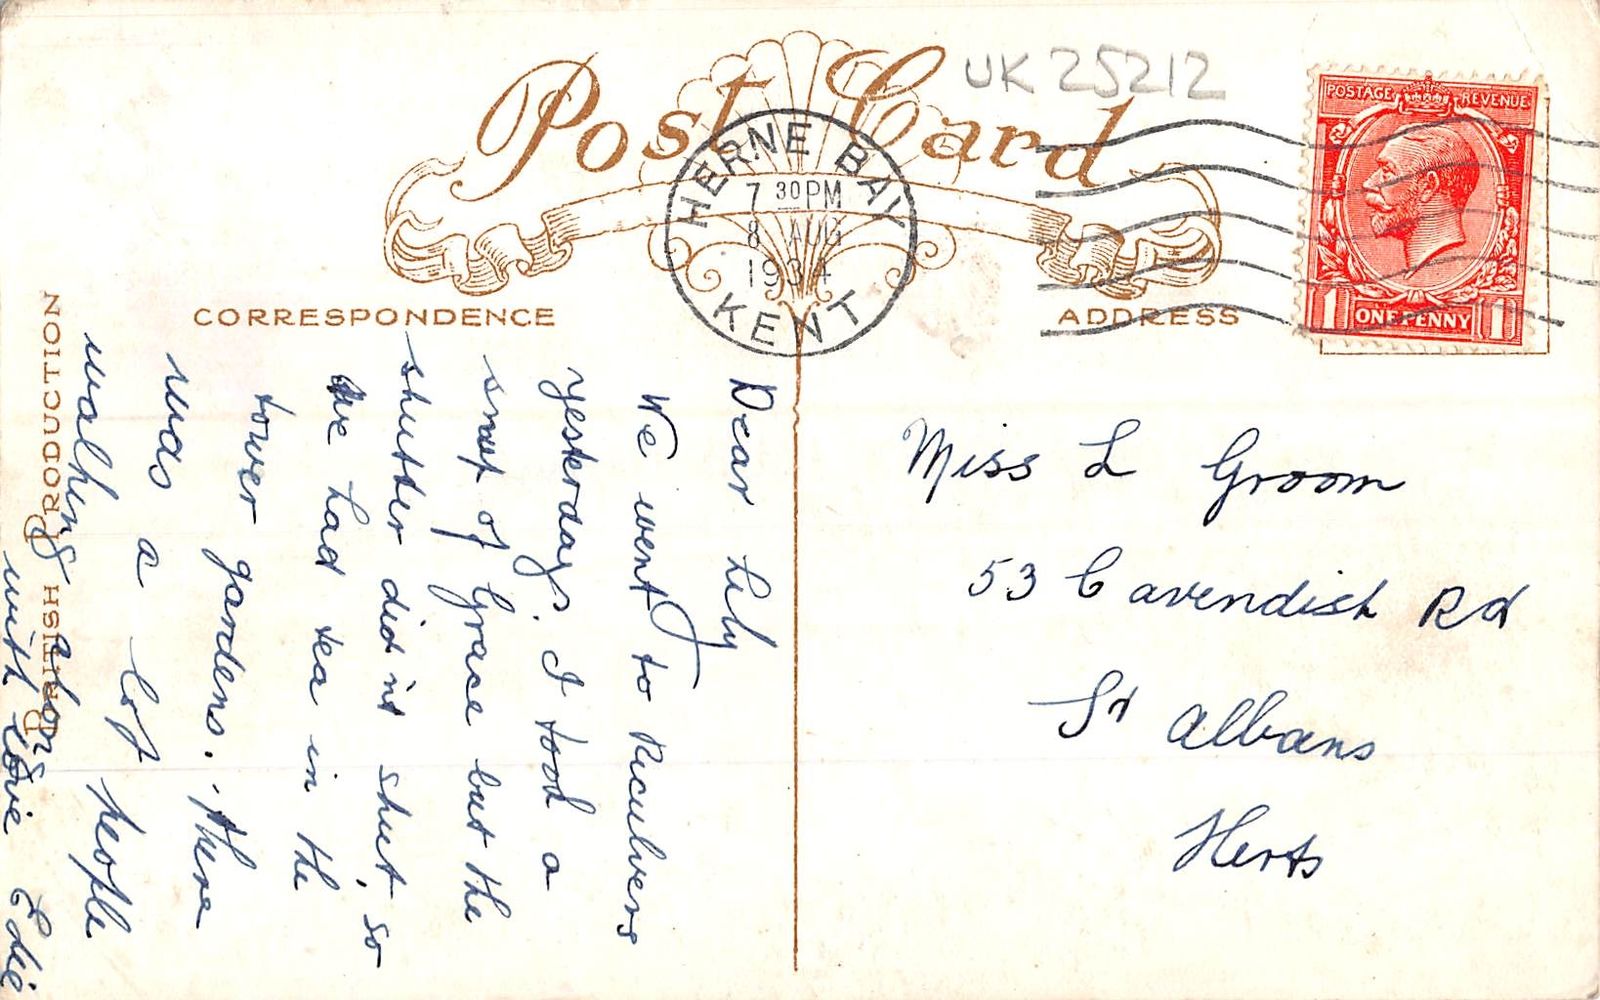 UK 25212
Post Card
HERNE BAY
7 30PM
8 AUG
1934
KENT
POSTAGE REVENUE
1 ONE PENNY 1
CORRESPONDENCE
ADDRESS
Dear Lily
We went to Reculvers
yesterday. I tood a
snap of Grace but the
shutter did n't shut, so
We had tea in the
tower gardens. There
was a lot people
walking along
with love Edie
Miss L Groom
53 Cavendish Rd
St Albans
Herts
BRITISH PRODUCTION